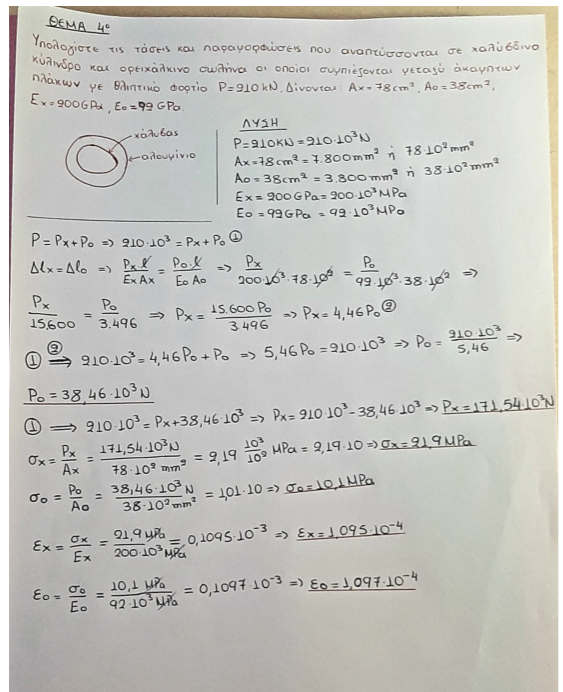 ΘΕΜΑ 4°
Υπολογίστε τις τάσεις και παραμορφώσεις που αναπτύσσονται σε χαλύβδινο
κύλινδρο και ορειχάλκινο σωλήνα οι οποίοι συμπιέζονται μεταξύ άκαμπτων
πλάκων με θλιπτικό φορτίο P=210kN. Δίνονται: Ax=78cm², Ao=38cm²,
Ex=200GPa, Eo=92GPa.
χάλυβας
αλουμίνιο
ΛΥΣΗ
P=210KN=210·10³N
Ax=78cm²=7.800mm² ή 78·10²mm²
Ao=38cm²=3.800mm² ή 38·10²mm²
Ex=200GPa=200·10³MPa
Eo=92GPa=92·10³MPa
P=Px+Po => 210·10³=Px+Po ①
Δlx=Δlo => Px·l/ExAx = Po·l/EoAo => Px/200·10³·78·10² = Po/92·10³·38·10² =>
Px/15.600 = Po/3.496 => Px=15.600Po/3.496 => Px=4,46Po ②
① ② => 210·10³=4,46Po+Po => 5,46Po=210·10³ => Po=210·10³/5,46 =>
Po=38,46·10³N
① => 210·10³=Px+38,46·10³ => Px=210·10³-38,46·10³ => Px=171,54·10³N
σx=Px/Ax=171,54·10³N/78·10²mm²=2,19 10³/10² MPa=2,19·10 => σx=21,9MPa
σo=Po/Ao=38,46·10³N/38·10²mm²=1,01·10 => σo=10,1MPa
εx=σx/Ex=21,9MPa/200·10³MPa=0,1095·10⁻³ => εx=1,095·10⁻⁴
εo=σo/Eo=10,1MPa/92·10³MPa=0,1097·10⁻³ => εo=1,097·10⁻⁴